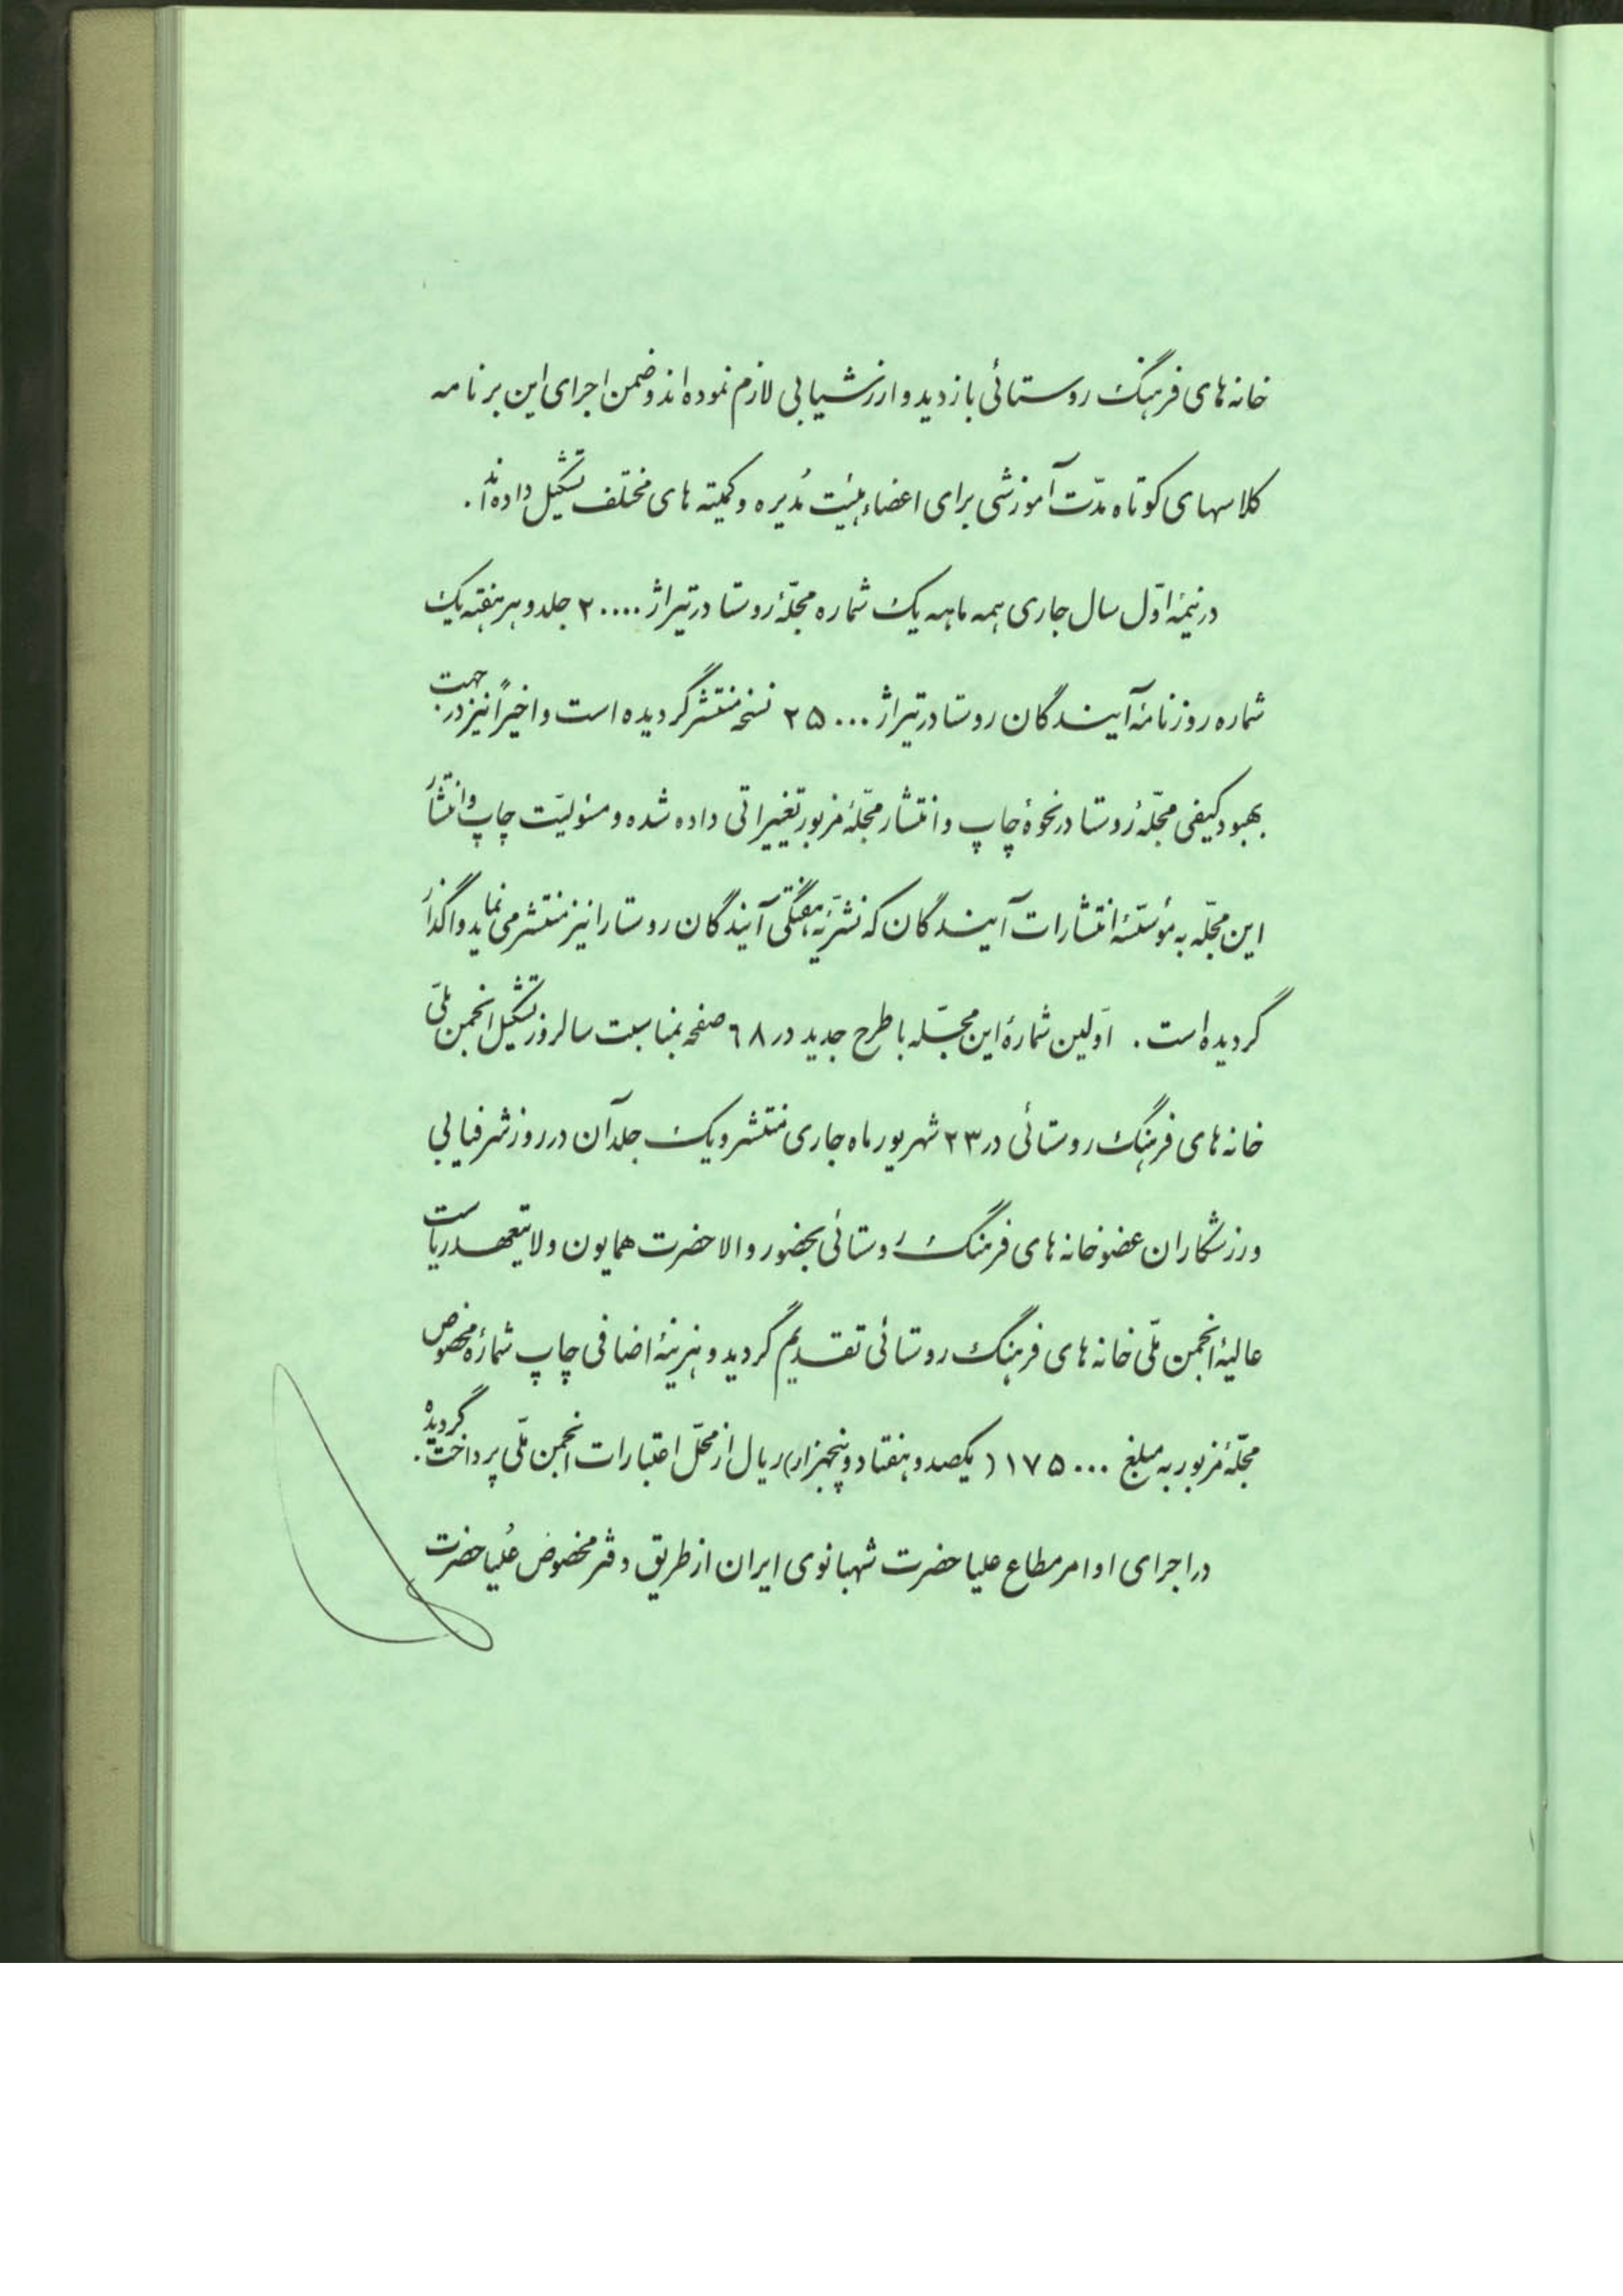 خانه های فرهنگ روستائی بازدید و ارزشیابی لازم نموده اند و ضمن اجرای این برنامه
کلاسهای کوتاه مدّت آموزشی برای اعضاء هیئت مُدیره و کمیته های مختلف تشکیل داده اند.
در نیمهٔ اوّل سال جاری همه ماهه یک شماره مجلّهٔ روستا در تیراژ ۲۰۰۰۰ جلد و هر هفته یک
شماره روزنامهٔ آیندگان روستا در تیراژ ۲۵۰۰۰ نسخه منتشر گردیده است و اخیراً نیز در جهت
بهبود کیفی مجلّهٔ روستا در نحوهٔ چاپ و انتشار مجلّهٔ مزبور تغییراتی داده شده و مسئولیّت چاپ و انتشار
این مجلّه به مؤسّسهٔ انتشارات آیندگان که نشریّهٔ هفتگی آیندگان روستا را نیز منتشر می نماید واگذار
گردیده است. اوّلین شمارهٔ این مجلّه با طرح جدید در ۶۸ صفحه بمناسبت سالروز تشکیل انجمن ملّی
خانه های فرهنگ روستائی در ۲۳ شهریور ماه جاری منتشر و یک جلد آن در روز شرفیابی
ورزشکاران عضو خانه های فرهنگ روستائی بحضور والاحضرت همایون ولایتعهد ریاست
عالیهٔ انجمن ملّی خانه های فرهنگ روستائی تقدیم گردید و هزینهٔ اضافی چاپ شمارهٔ مخصوص
مجلّهٔ مزبور به مبلغ ۱۷۵۰۰۰ (یکصد و هفتاد و پنجهزار) ریال از محلّ اعتبارات انجمن ملّی پرداخت گردیده.
در اجرای اوامر مطاع علیاحضرت شهبانوی ایران از طریق دفتر مخصوص عُلیاحضرت